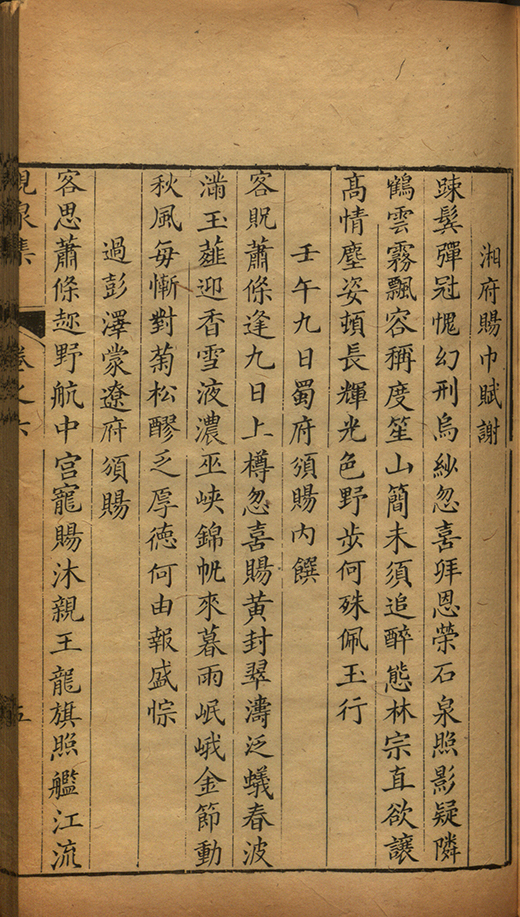 湘府賜巾賦謝
踈鬂彈冠愧幻刑烏紗忽喜拜恩榮石泉照影疑隣
鶴雲霧飄容稱度笙山簡未須追醉態林宗直欲讓
髙情塵姿頓長輝光色野步何殊佩玉行
壬午九日蜀府頒賜内饌
客貺蕭條逢九日上樽忽喜賜黄封翠濤泛蟻春波
滿玉薤迎香雪液濃巫峽錦帆來暮雨岷峨金節動
秋風每慚對菊松醪乏厚徳何由報盛悰
過彭澤蒙遼府頒賜
客思蕭條趂野航中宫寵賜沐親王龍旗照艦江流
峴泉集
卷之六
五